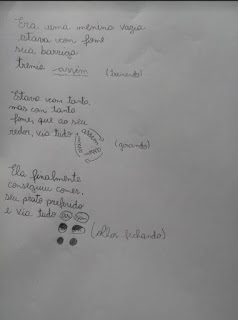 Era uma menina vazia
estava com fome
sua barriga
tremia assim (tremendo)
Estava com tanta
mas com tanta
fome, que ao seu
redor, via tudo assim assim assim (girando)
Ela finalmente
conseguiu comer,
seu prato preferido
e via tudo
(olhos fechando)